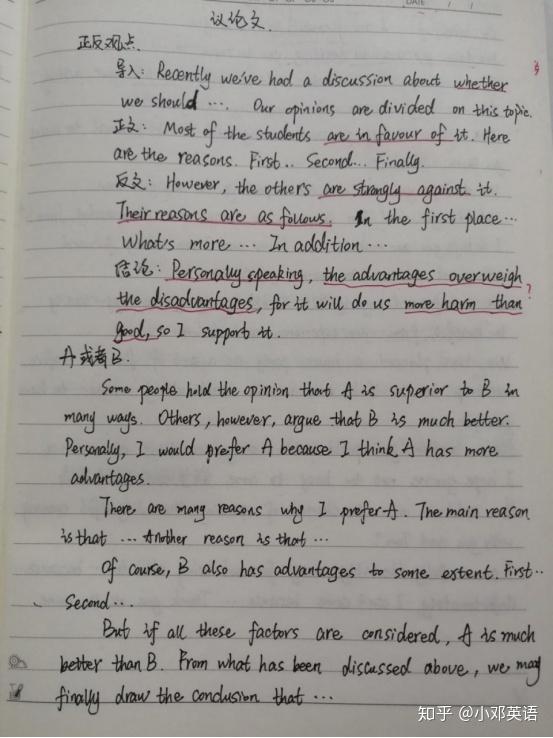 DATE / /
议论文.
正反观点.
导入: Recently we've had a discussion about whether
we should .... Our opinions are divided on this topic.
正文: Most of the students are in favour of it. Here
are the reasons. First.. Second... Finally.
反文: However, the others are strongly against it.
Their reasons are as follows. In the first place...
What's more ... In addition ...
结论: Personally speaking, the advantages overweigh
the disadvantages, for it will do us more harm than ?
good, so I support it.
A或者B.
Some people hold the opinion that A is superior to B in
many ways. Others, however, argue that B is much better.
Personally, I would prefer A because I think A has more
advantages.
There are many reasons why I prefer A. The main reason
is that ... Another reason is that ...
Of course, B also has advantages to some extent. First..
Second...
But if all these factors are considered, A is much
better than B. From what has been discussed above, we may
finally draw the conclusion that ...
知乎 @小邓英语